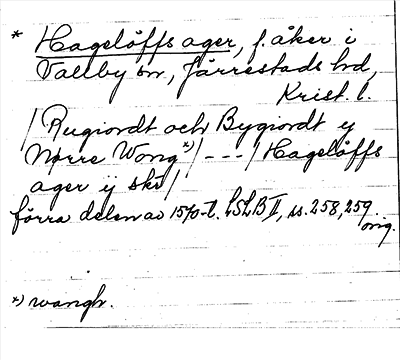 * Hagelöffs ager, f. åker i
Vallby sn, Järrestads hd,
Krist. l.
/Rugiordt och Bygiordt ÿ
Nørre Wong*)/---/Hagelöffs
ager ÿ skt/
förra delen av 1570-t. LSLB II, ss. 258, 259.
orig.
*) wangh.